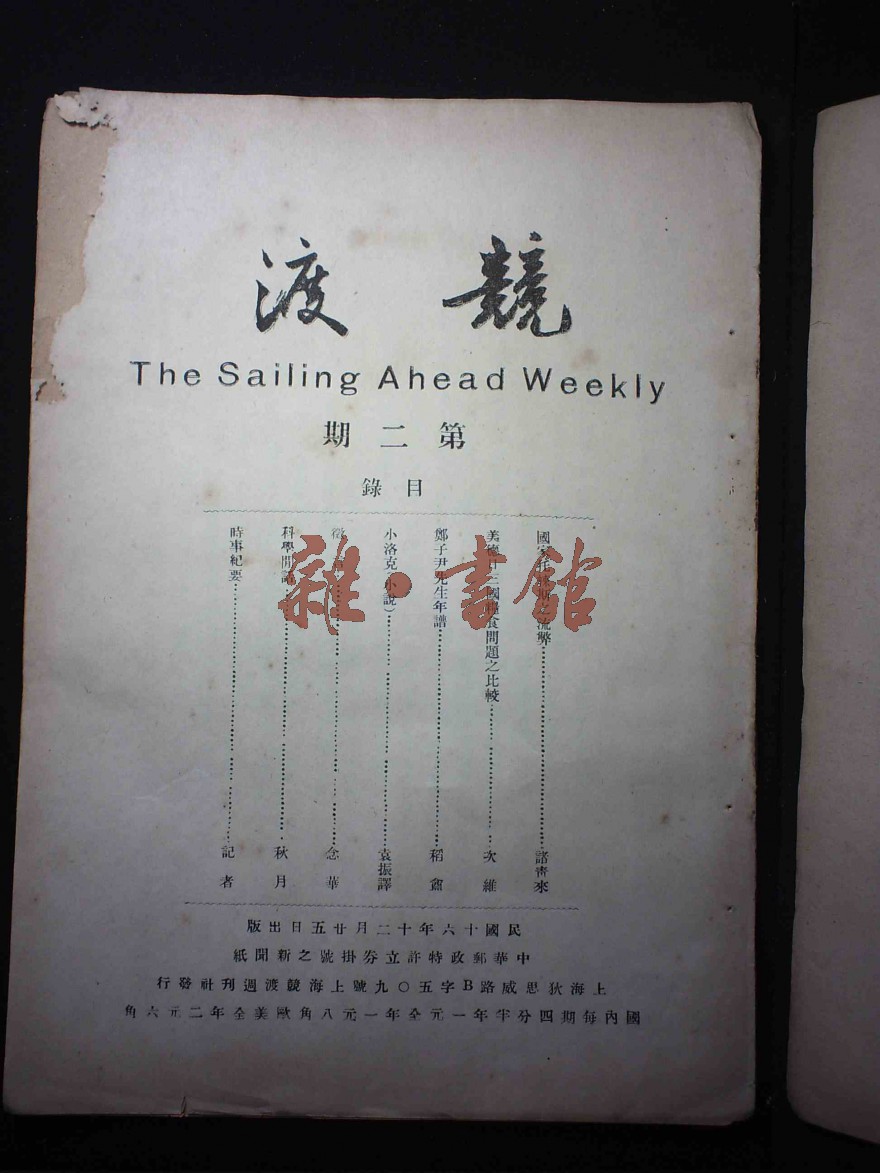 競渡
The Sailing Ahead Weekly
第二期
目錄
國家 之流弊 諸青來
美 三國 食問題之比較 次維
鄭子尹先生年譜 稻龕
小洛克(小說) 袁振譯
念華
科學閒話 秋月
時事紀要 記者
民國十六年十二月廿五日出版
中華郵政特許立券掛號之新聞紙
上海狄思威路B字五〇九號上海競渡週刊社發行
國內每期四分半年一元全年一元八角歐美全年二元六角
雜·書館